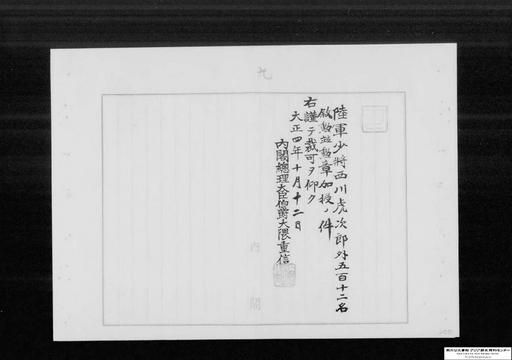 陸軍少將西川虎次郎外五百十二名
敘勲並勲章加授ノ件
右謹テ裁可ヲ仰ク
大正四年十月十二日
內閣總理大臣伯爵大隈重信
內閣